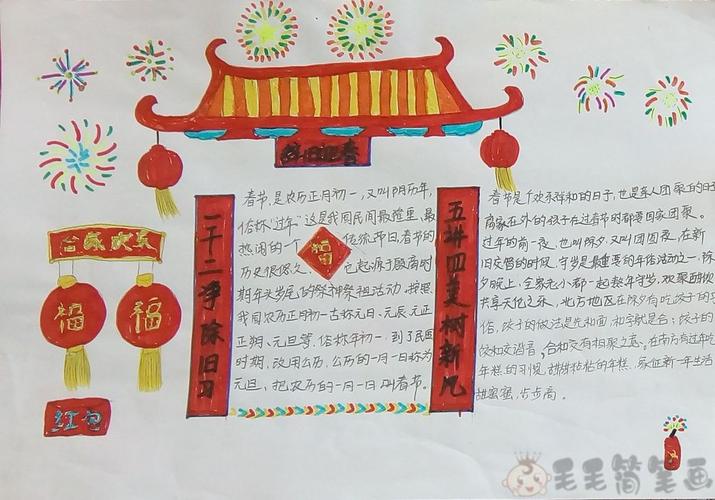 辞旧迎春
合家欢乐
福 福
红包
一干二净除旧习
春节,是农历正月初一,又叫阴历年,
俗称"过年"这是我国民间最隆重、最
热闹的一个 传统节日,春节的
福
历史很悠久, 它起源于殷商时
期年头岁尾的祭神祭祖活动,按照
我国农历正月初一古称元日、元辰、元正
正朔、元旦等、俗称年初一,到了民国
时期,改用公历,公历的一月一日称为
元旦,把农历的一月一日叫春节。
五讲四美树新风
春节是个欢乐祥和的日子,也是亲人团聚的日
离家在外的孩子在过春节时都要回家团聚。
过年的前一夜,也叫除夕,又叫团圆夜,在新
旧交替的时候,守岁是最重要的年俗活动之一,除
夕晚上,全家老小都一起熬年守岁,欢聚酣饮
共享天伦之乐,北方地区在除夕有吃饺子的
俗,饺子的做法是先和面,和字就是合;饺子的
饺和交谐音,合和交有相聚之意。在南方有过年吃
年糕的习惯,甜甜粘粘的年糕,象征新一年生活
甜蜜蜜,步步高。
毛毛简笔画